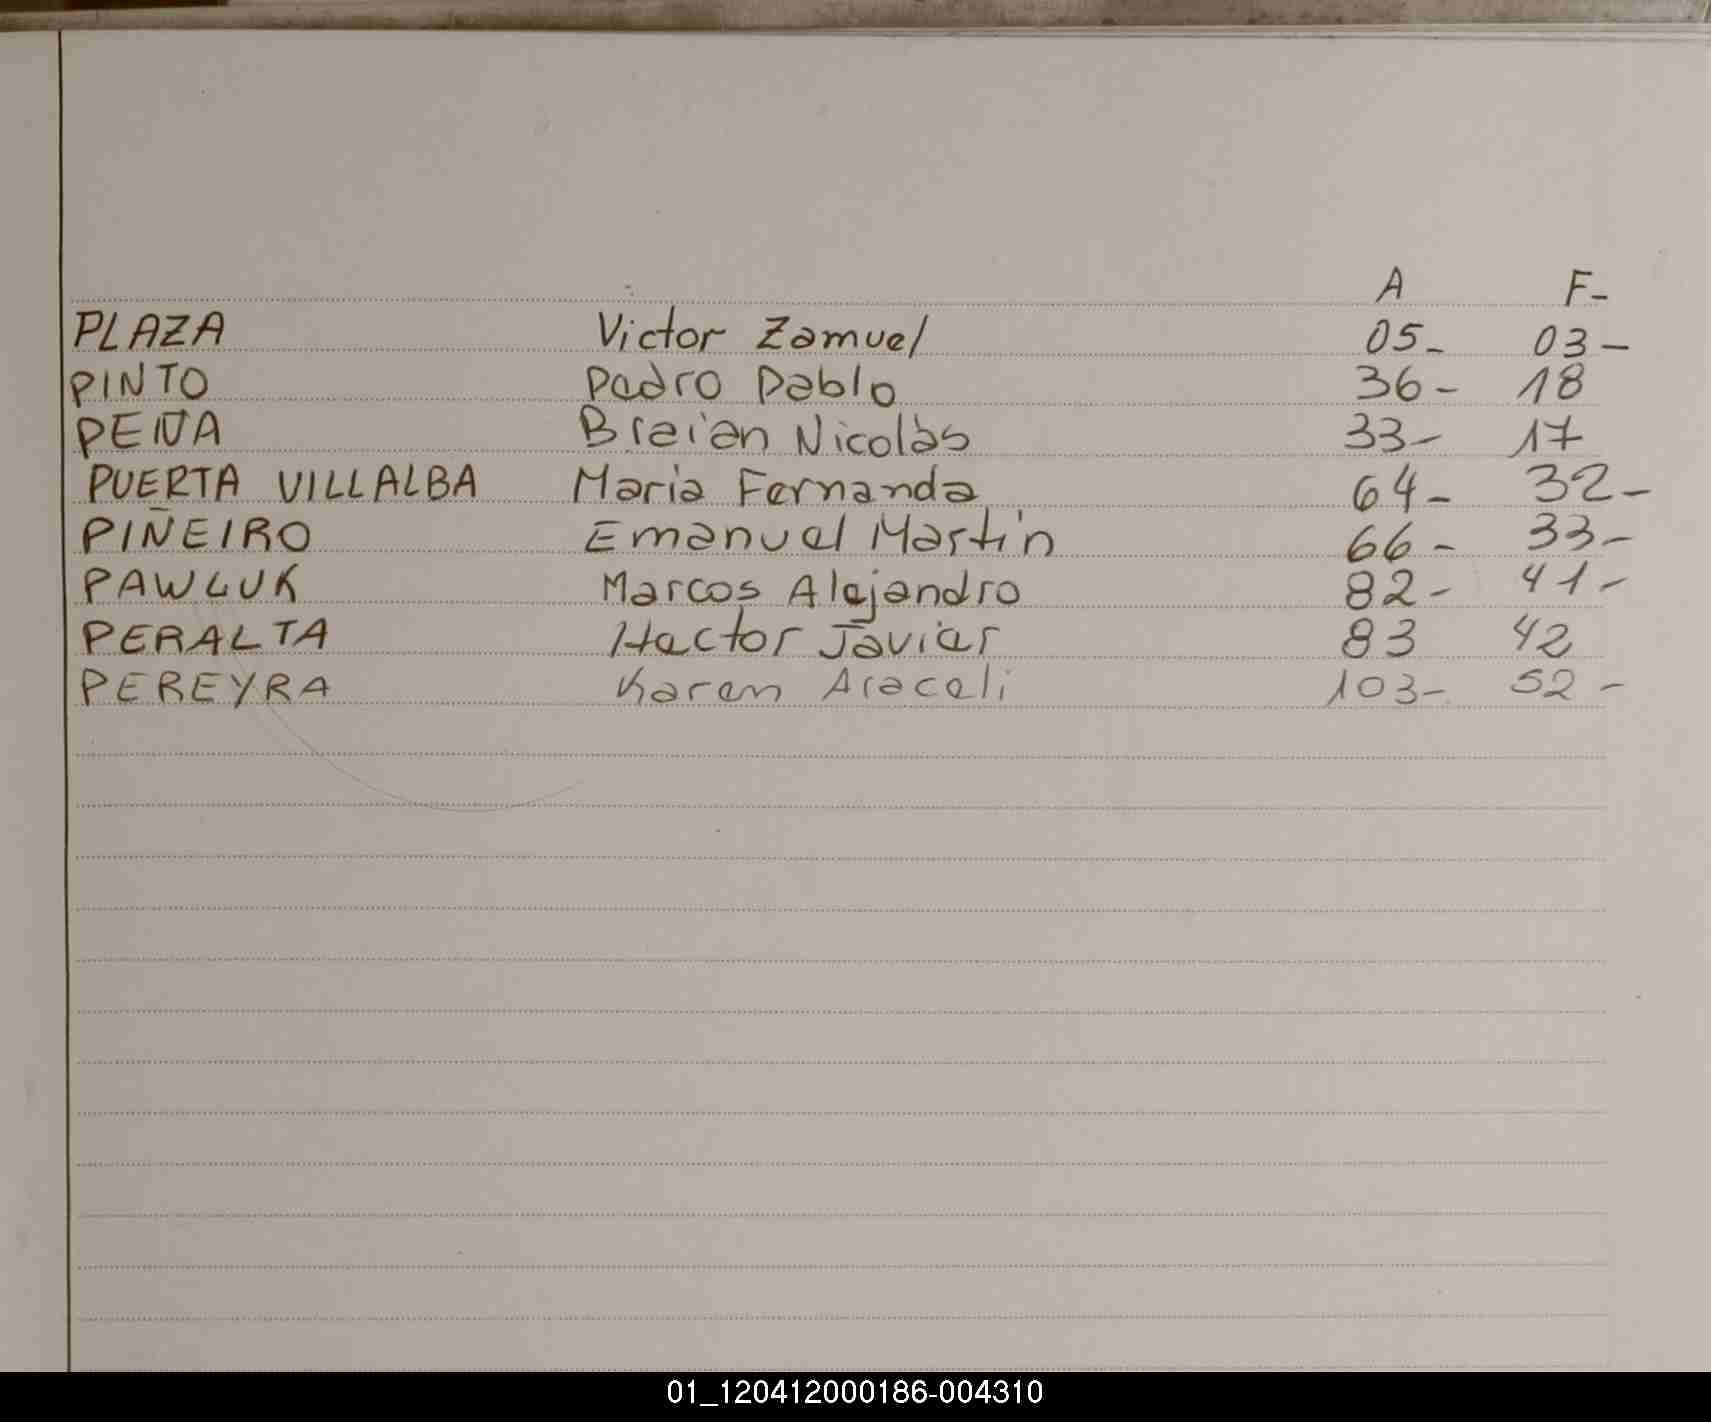 A F-
PLAZA Victor Zamuel 05- 03-
PINTO Pedro Pablo 36- 18
PEÑA Braian Nicolás 33- 17
PUERTA VILLALBA Maria Fernanda 64- 32-
PIÑEIRO Emanuel Martín 66- 33-
PAWLUK Marcos Alejandro 82- 41-
PERALTA Hector Javier 83 42
PEREYRA Karen Araceli 103- 52-
01_120412000186-004310